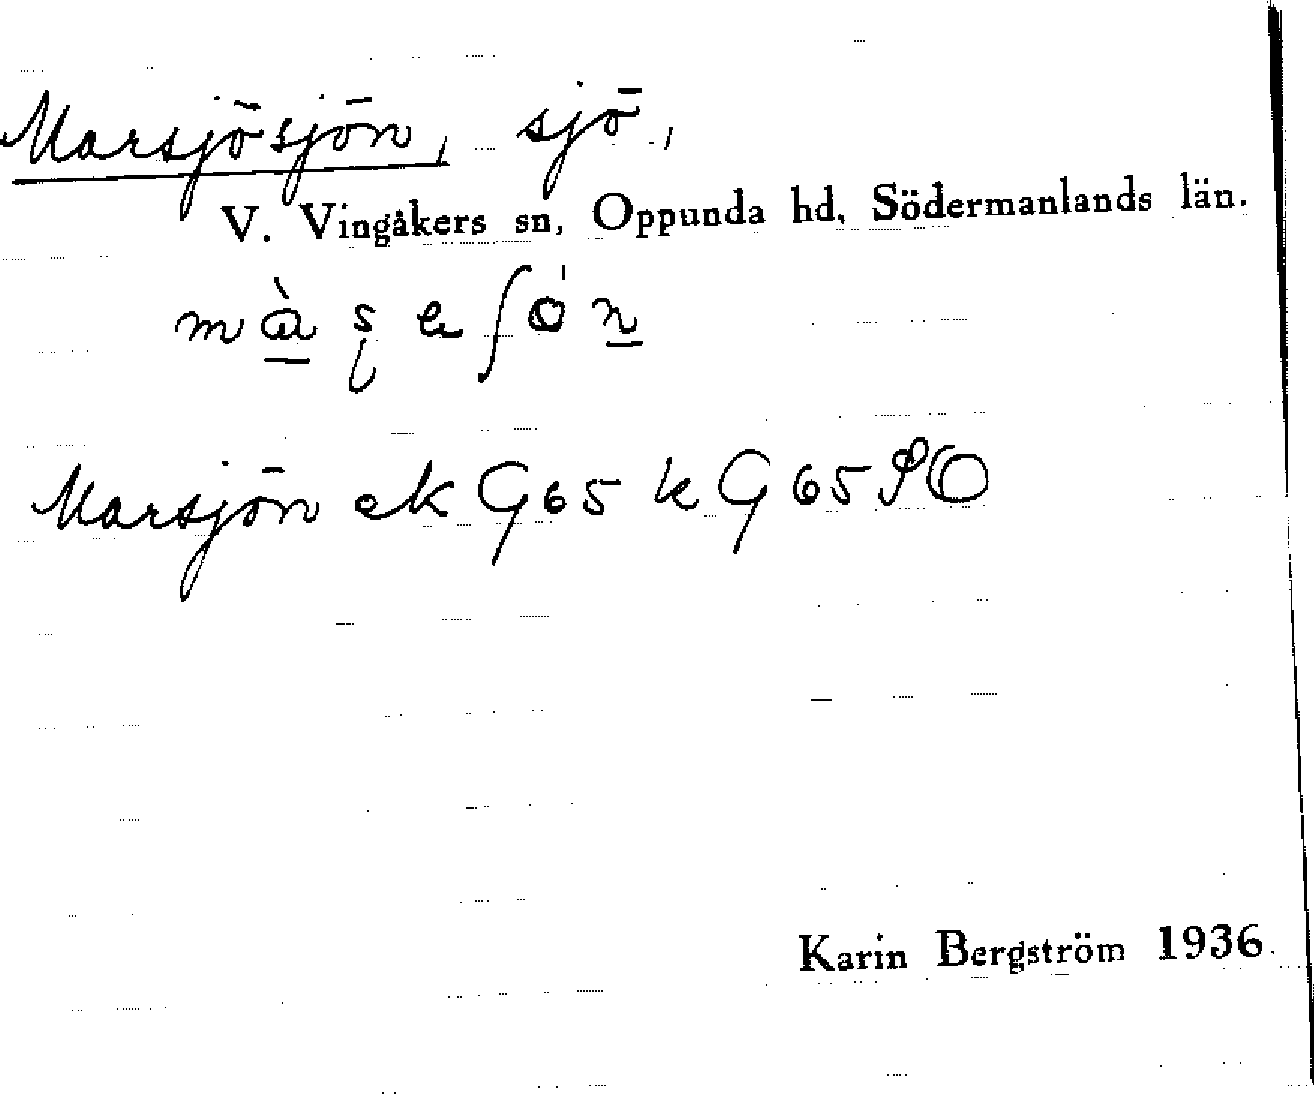 Marsjösjön, sjö,
V. Vingåkers sn, Oppunda hd, Södermanlands län.
Marsjön ek G65 k G65 SO
Karin Bergström 1936